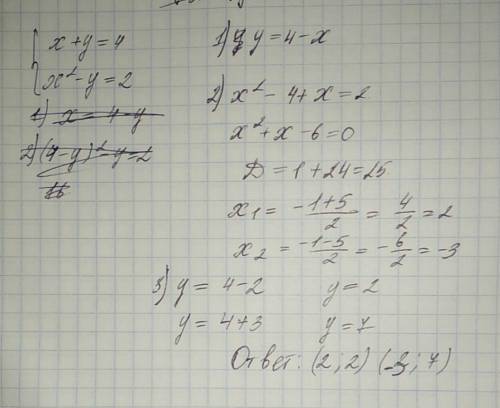 { x + y = 4
x² - y = 2
1) x = 4 - y
2) (4 - y)² - y = 2
1) y = 4 - x
2) x² - 4 + x = 2
x² + x - 6 = 0
D = 1 + 24 = 25
x₁ = (-1+5)/2 = 4/2 = 2
x₂ = (-1-5)/2 = -6/2 = -3
3) y = 4 - 2 y = 2
y = 4 + 3 y = 7
Ответ: (2; 2) (-3; 7)